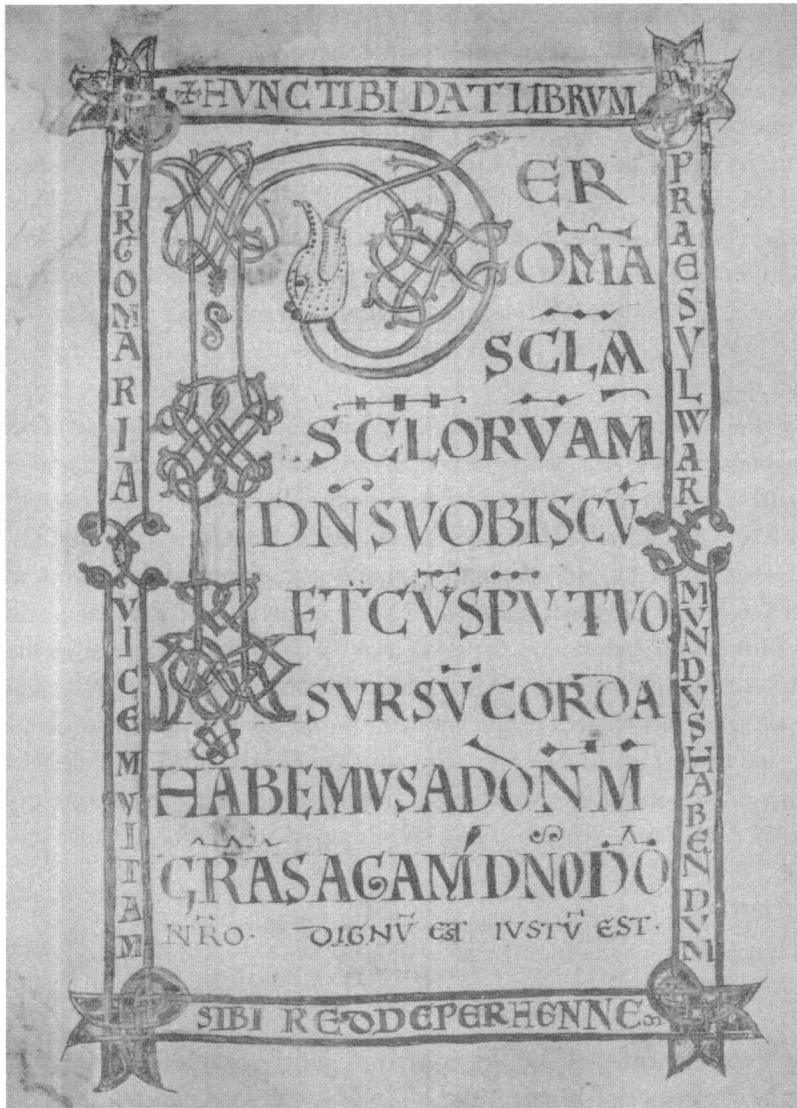 ✠ HVNC TIBI DAT LIBRVM
PRAESVL WAR
MVNDVS HABENDVM
VIRGO MARIA
VICE M VITAM
SIBI REDDE PERHENNEM
PER
OMA
SCLA
SCLORV AM
DN̄S VOBISCV̄
ET CV̄ SPV̄ TVO
SVRSV̄ CORDA
HABEMVS AD DN̄M
GRAS AGAM DN̄O DŌ
NR̄O · DIGNV̄ ET IVSTV̄ EST ·